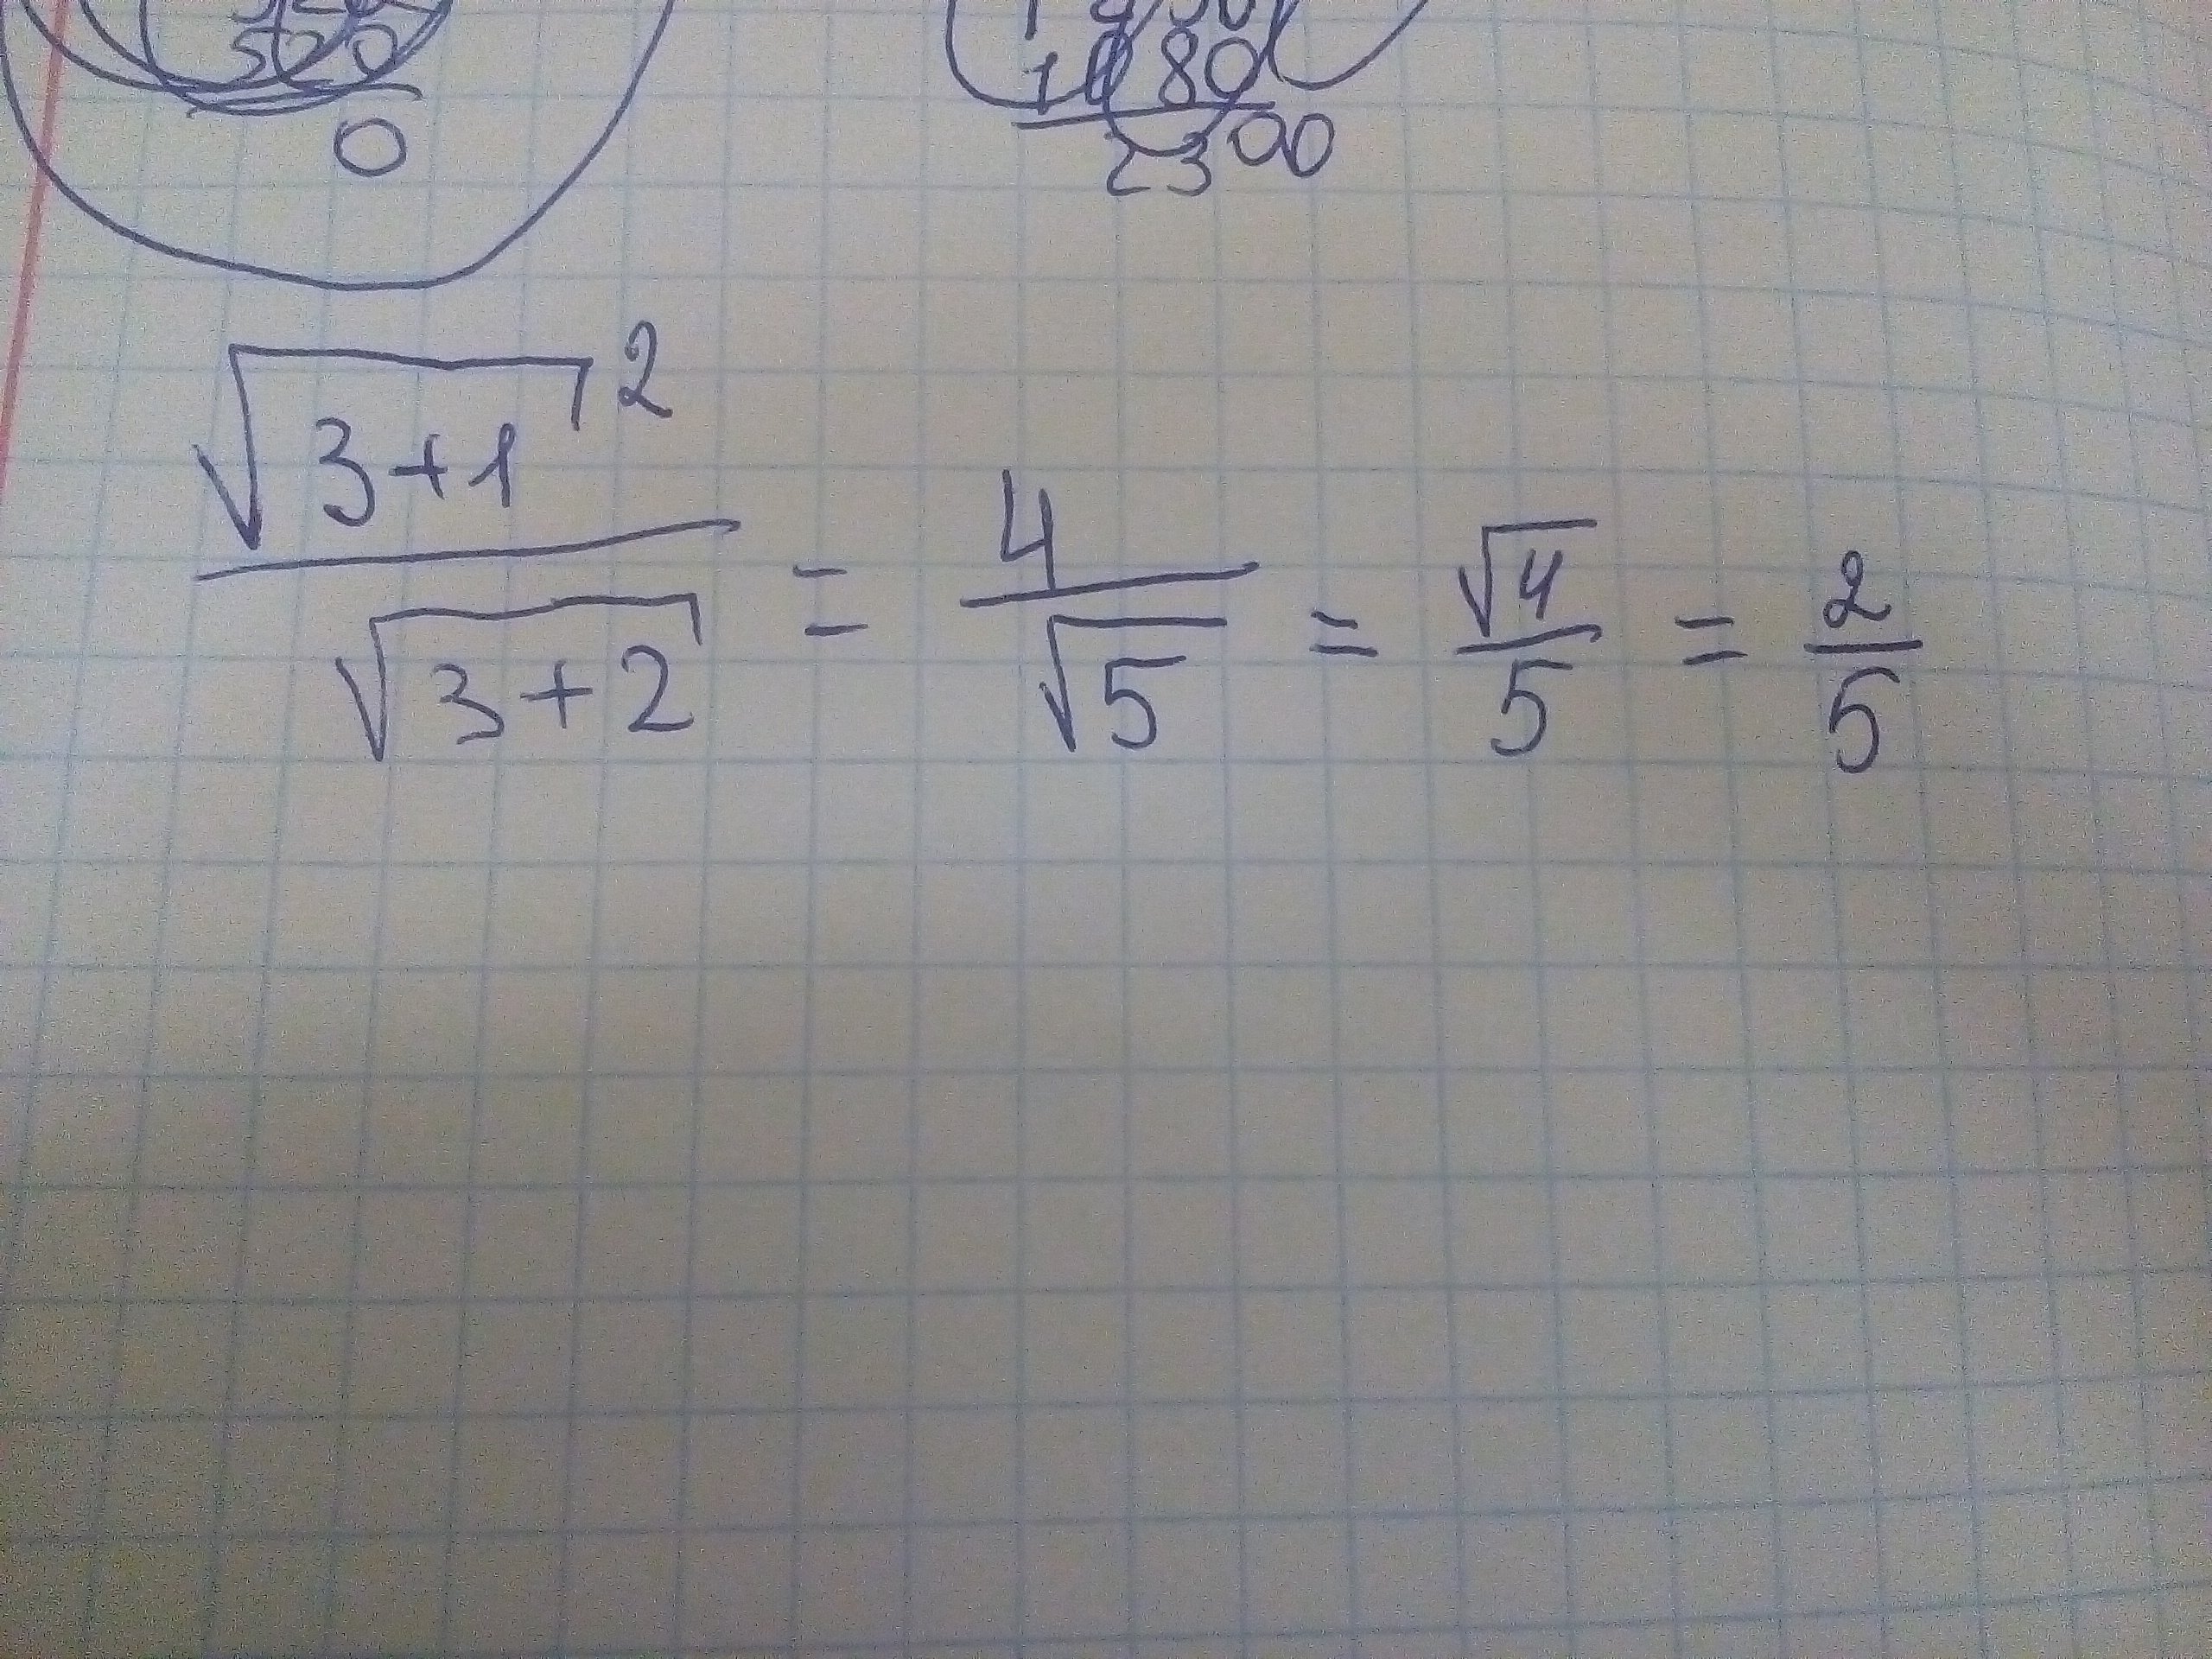 520
0
1080
2300
√(3+1)² / √(3+2) = 4/√5 = √4/5 = 2/5